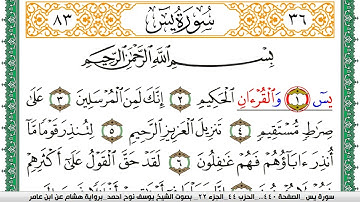 ٨٣ سُورَةُ يسٓ ٣٦
بِسْمِ اللَّهِ الرَّحْمَٰنِ الرَّحِيمِ
يسٓ ١ وَالْقُرْءَانِ الْحَكِيمِ ٢ إِنَّكَ لَمِنَ الْمُرْسَلِينَ ٣ عَلَىٰ
صِرَٰطٍ مُّسْتَقِيمٍ ٤ تَنزِيلُ الْعَزِيزِ الرَّحِيمِ ٥ لِتُنذِرَ قَوْمًا مَّا
أُنذِرَ ءَابَآؤُهُمْ فَهُمْ غَٰفِلُونَ ٦ لَقَدْ حَقَّ الْقَوْلُ عَلَىٰٓ أَكْثَرِهِمْ
سورة يس.. الصفحة ٤٤٠.. الحزب ٤٤.. الجزء ٢٢.. بصوت الشيخ يوسف نوح احمد .برواية هشام عن ابن عامر